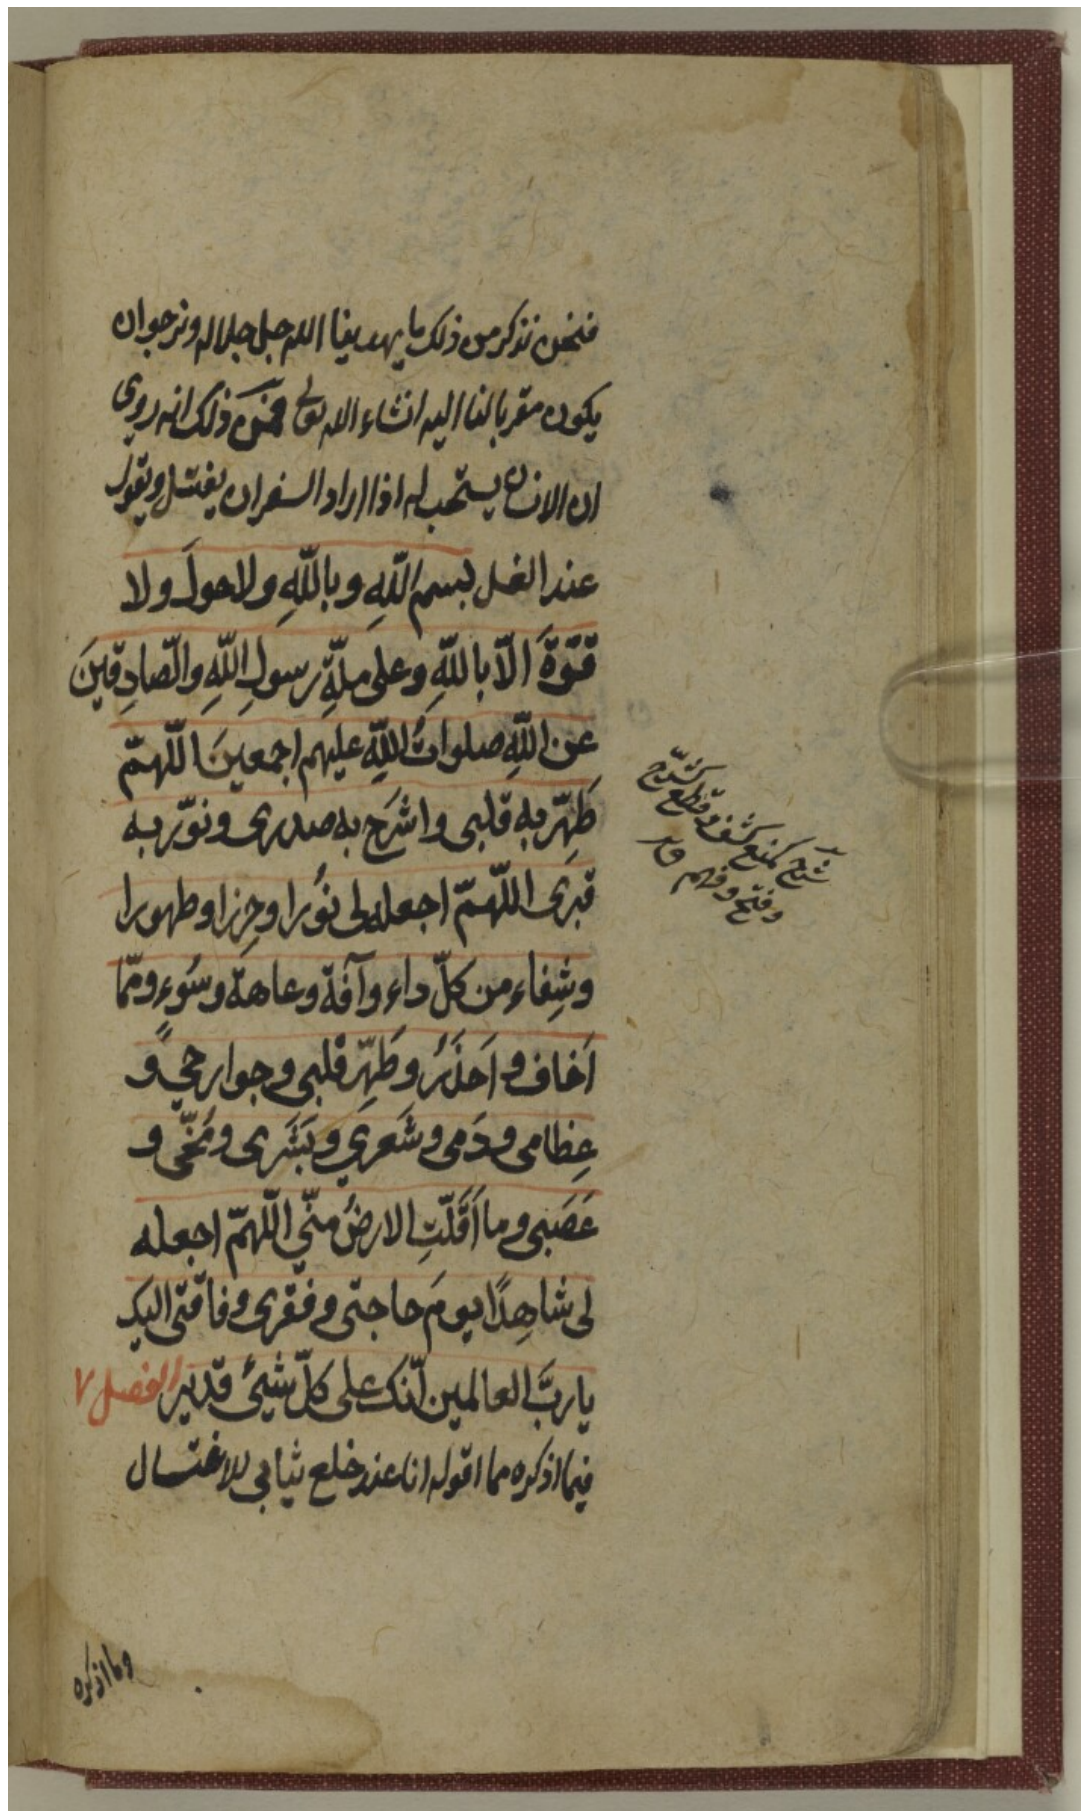 فنحن نذكر من ذلك ما يهدينا الله جل جلاله ونرجو ان
يكون مقربا لنا اليه انشاء الله تعالى فمن ذلك انه روي
ان الانسان يستحب له اذا اراد السفر ان يغتسل ويقول
عند الغسل بسم اللّهِ وباللّهِ ولا حولَ ولا
قوّةَ الّا باللّهِ وعلى ملّةِ رسولِ اللّهِ والصّادِقينَ
عن اللّهِ صلواتُ اللّهِ عليهم اجمعينَ اللّهمّ
طَهِّر به قلبى واشرَح به صدرى ونوّر به
قبرى اللّهمّ اجعله لى نُورا وحِرزا وطهورا
وشِفاء من كلّ داء وآفة وعاهة وسُوء وممّا
اَخاف واَحذَرُ وطَهِّر قلبى وجوارحي و
عِظامى ودَمى وشَعري وبَشَرى ومُخّى و
عَصَبى وما اَقَلّتِ الارضُ منّي اللّهمّ اجعله
لى شاهِدًا يومَ حاجتى وفقرى وفاقتى اليك
يا ربَّ العالمين انّك على كلّ شيئ قدير الفصل ٧
فيما اذكره مما اقوله انا عند خلع ثيابي للاغتسال
شرح كمنع كشف وقطع كشرّح
وفتح وفهم
وما اذكره